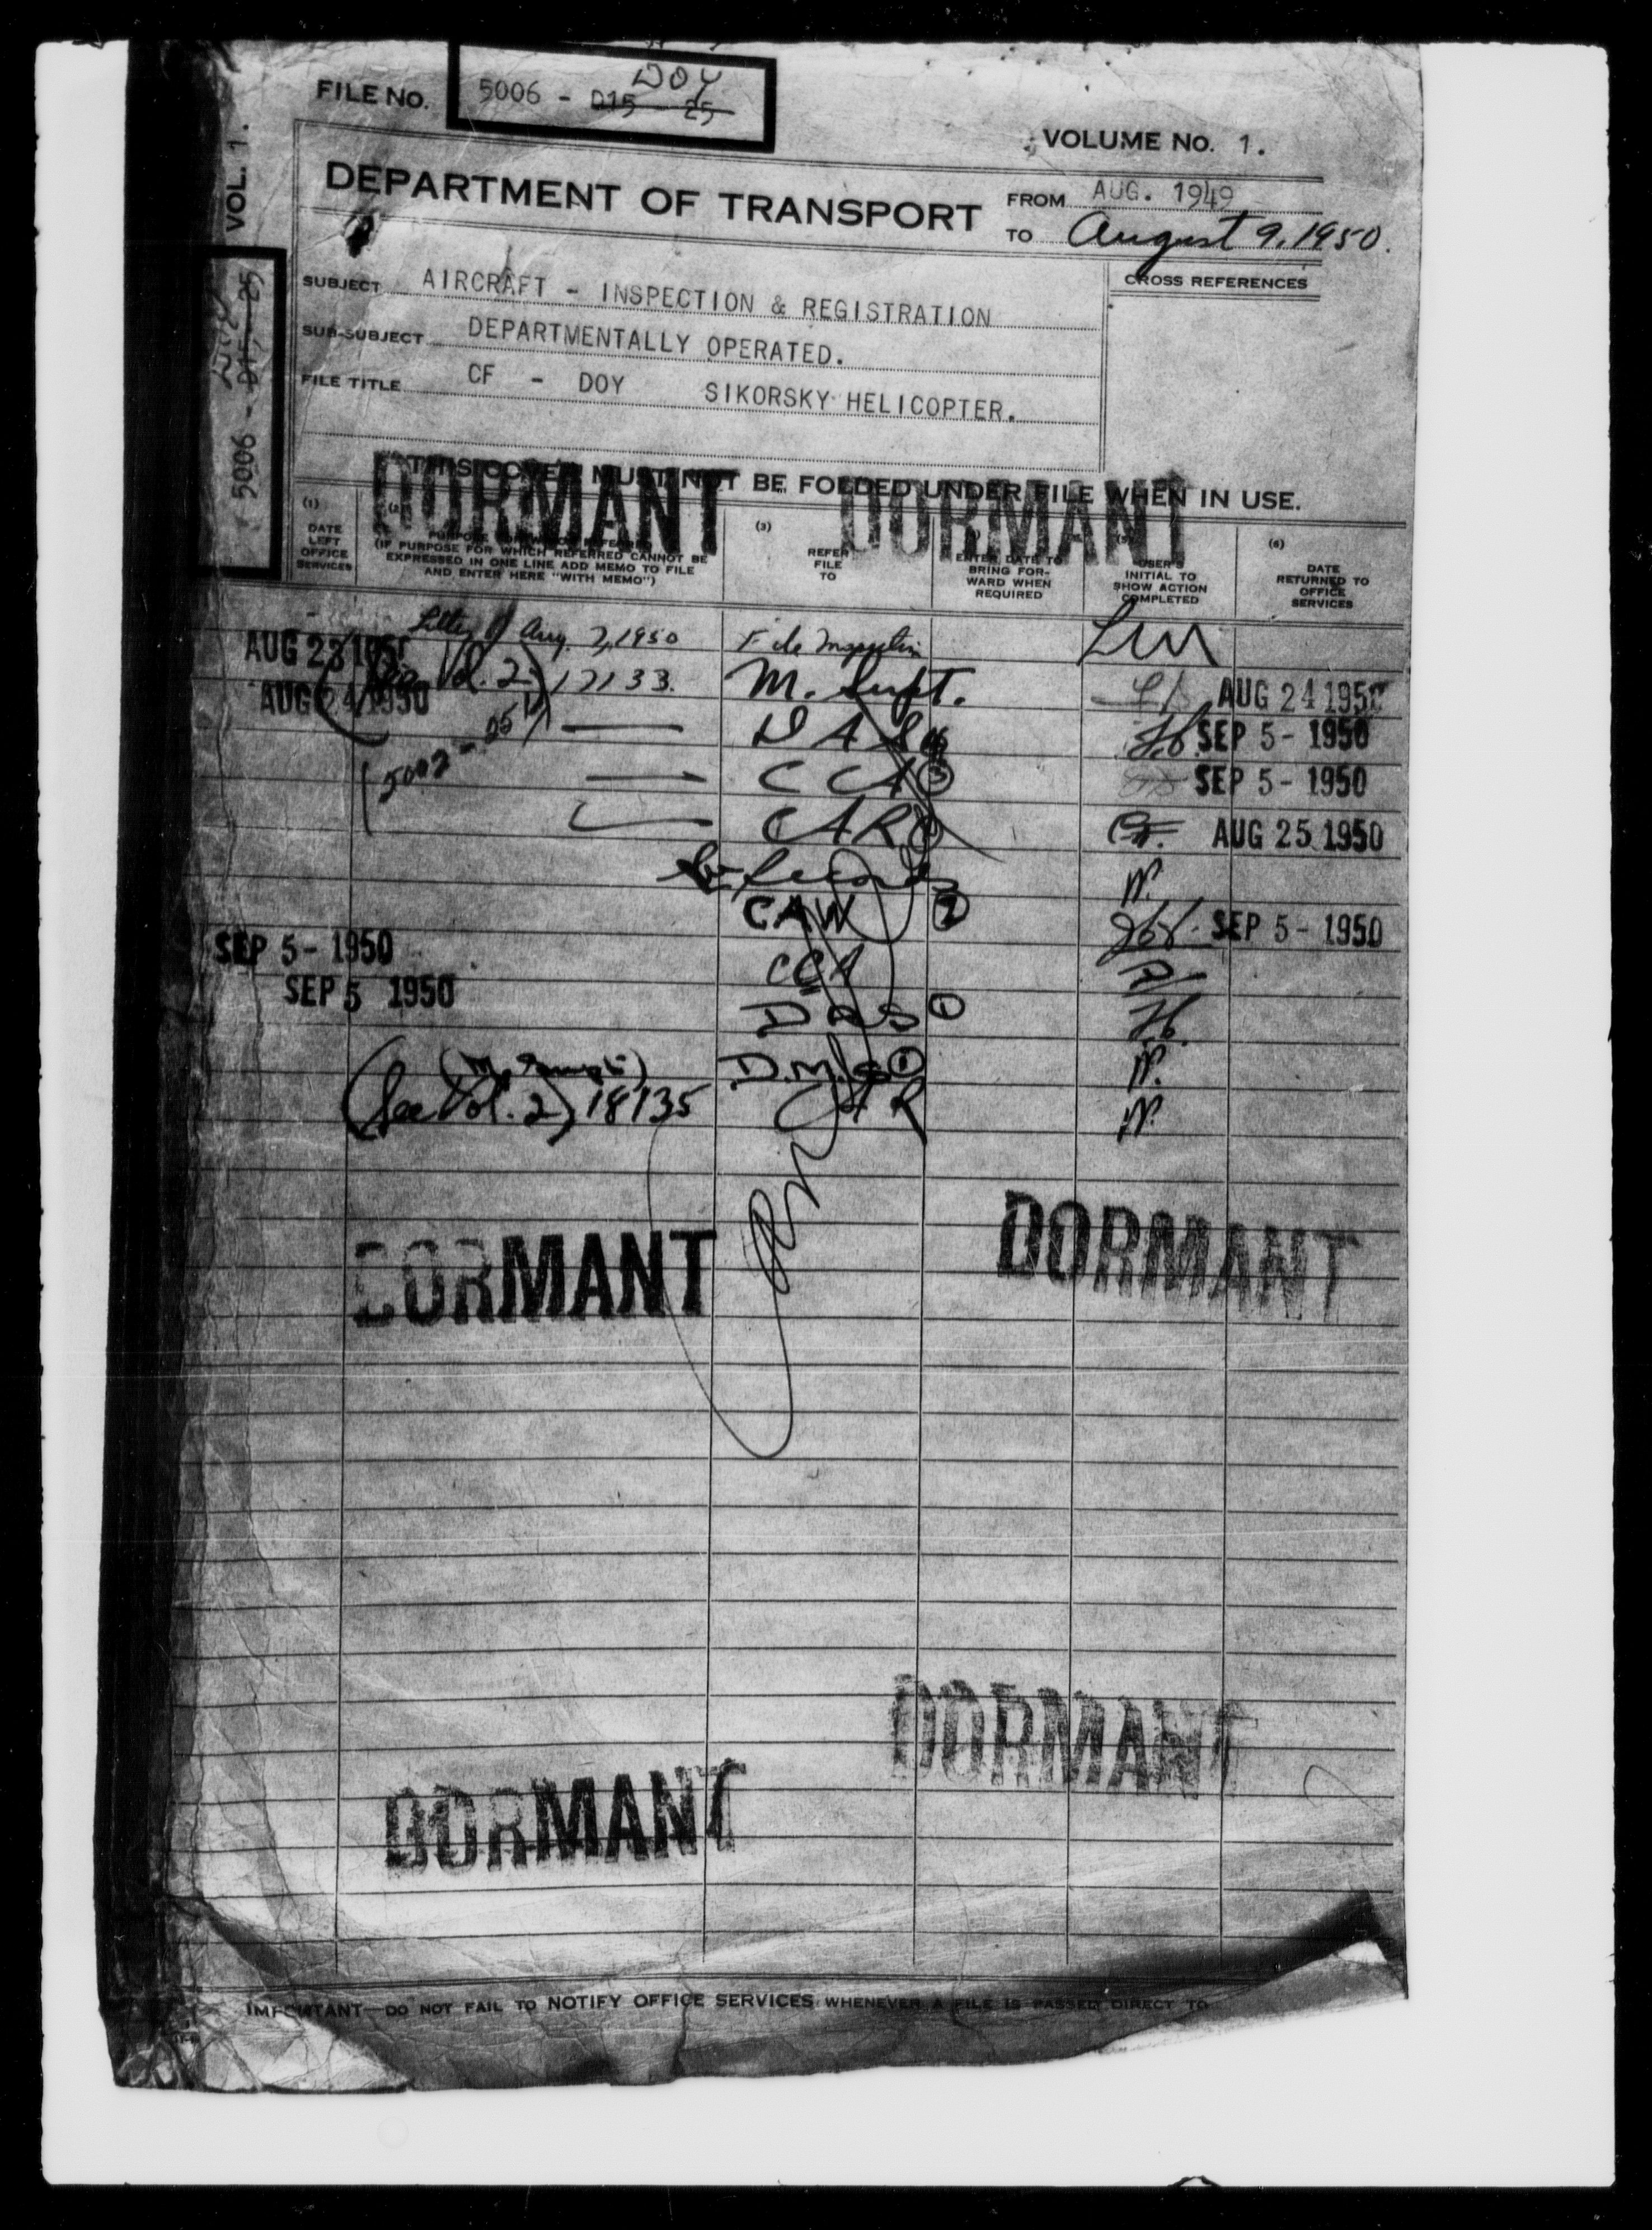 FILE NO. 5006 - D15 - 25 DOY
VOLUME NO. 1.
VOL. 1.
DEPARTMENT OF TRANSPORT
FROM AUG. 1949
TO August 9, 1950.
5006 - D15 - 25
SUBJECT AIRCRAFT - INSPECTION & REGISTRATION
CROSS REFERENCES
SUB-SUBJECT DEPARTMENTALLY OPERATED.
FILE TITLE CF - DOY SIKORSKY HELICOPTER.
THIS COVER MUST NOT BE FOLDED UNDER FILE WHEN IN USE.
DORMANT DORMANT
(1) DATE LEFT OFFICE SERVICES
(2) (IF PURPOSE FOR WHICH REFERRED CANNOT BE EXPRESSED IN ONE LINE ADD MEMO TO FILE AND ENTER HERE "WITH MEMO")
(3) REFER FILE TO
ENTER DATE TO BRING FORWARD WHEN REQUIRED
USER'S INITIAL TO SHOW ACTION COMPLETED
(6) DATE RETURNED TO OFFICE SERVICES
AUG 23 1950 Aug. 2, 1950
AUG 24 1950 Vol. 2) 17133. M. Supt. AUG 24 1950
DAS SEP 5 - 1950
5002 - CCA ③ SEP 5 - 1950
CAR AUG 25 1950
Records
CAW ② SEP 5 - 1950
SEP 5 - 1950 CCA
SEP 5 1950 DAS ①
D.M.S
(See Vol. 2) 18135 CAR
DORMANT DORMANT
DORMANT
DORMANT
IMPORTANT—DO NOT FAIL TO NOTIFY OFFICE SERVICES WHENEVER A FILE IS PASSED DIRECT TO